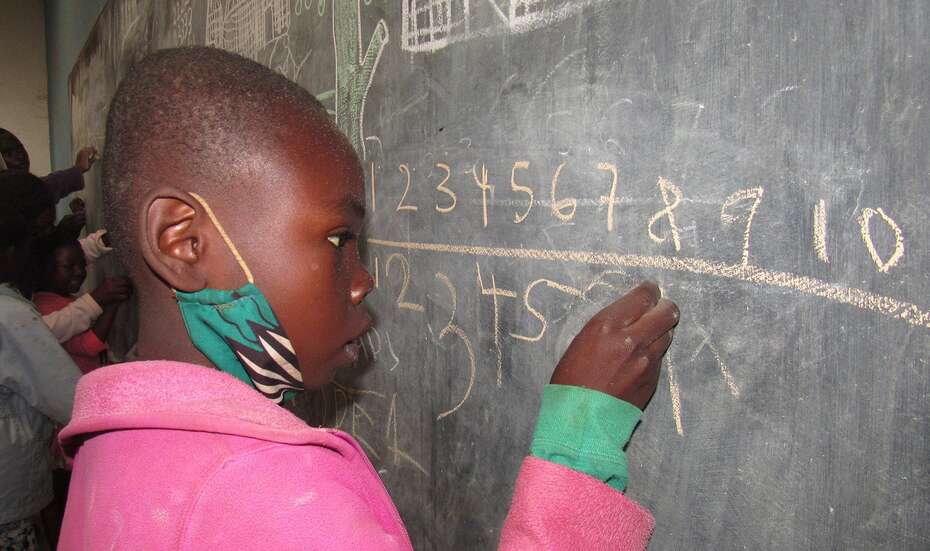 1 2 3 4 5 6 7 8 9 10
1 2 3 4 5